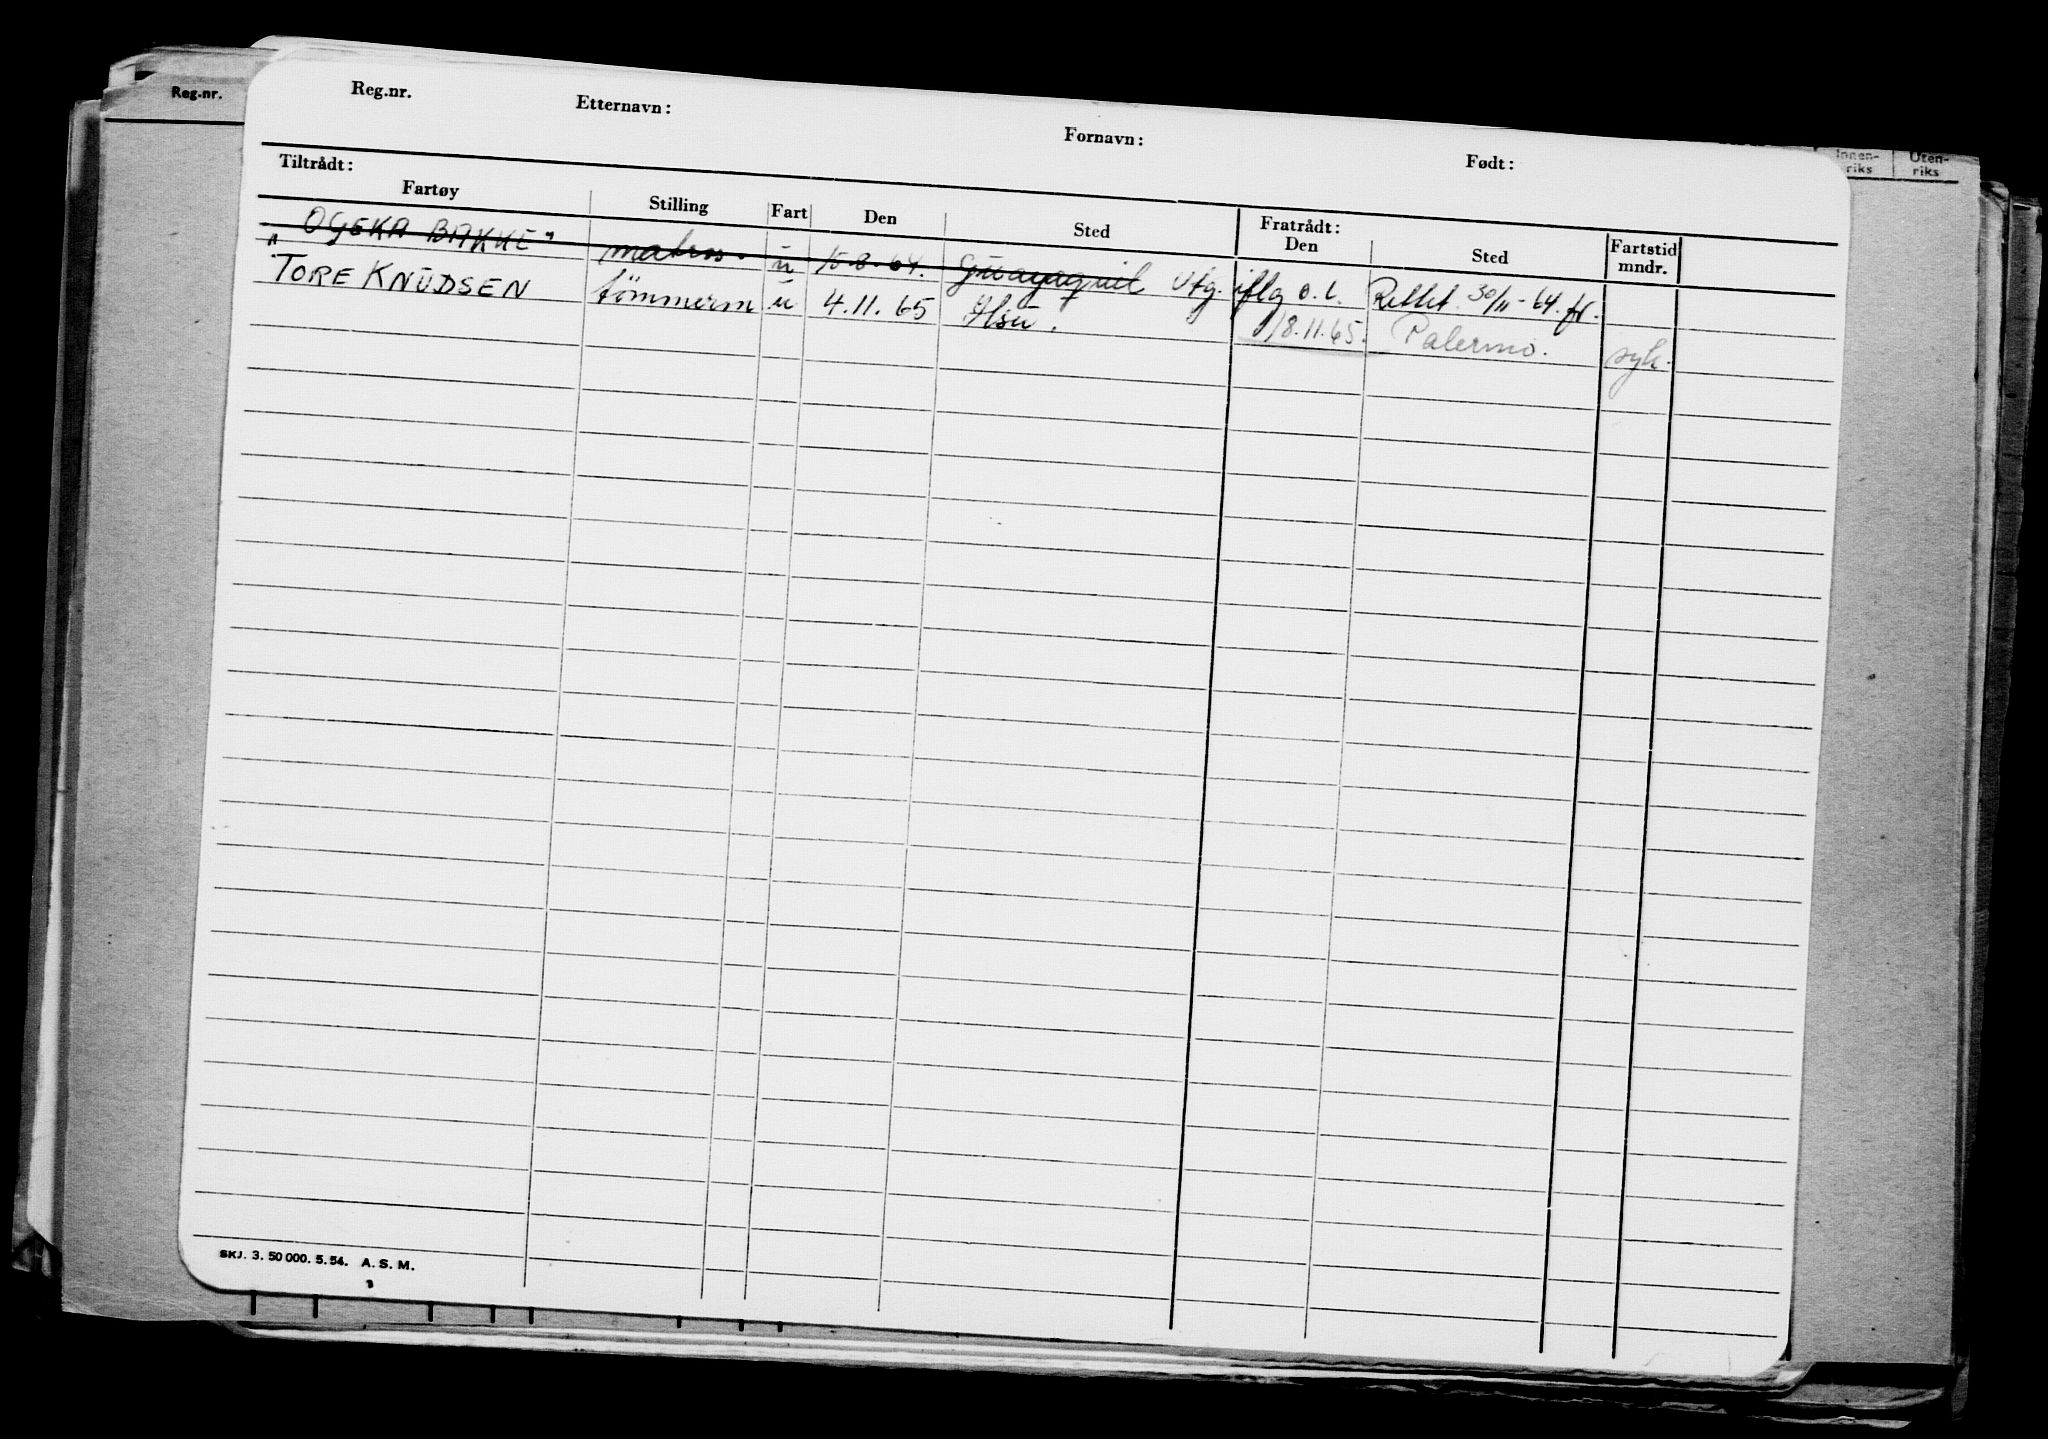 Reg.nr.
Reg.nr. Etternavn: Fornavn: Født:
Innen-riks Uten-riks
Tiltrådt: Fratrådt:
Fartøy Stilling Fart Den Sted Den Sted Fartstid mndr.
"OGEKA BAKKE" matros. ü 15.8.64. Guayaquil Utg. iflg o.l. Rettet 30/11-64. fr.
TORE KNUDSEN tömmerm ü 4.11.65 18.11.65. Palermo. syk.
SKJ. 3. 50 000. 5. 54. A. S. M.